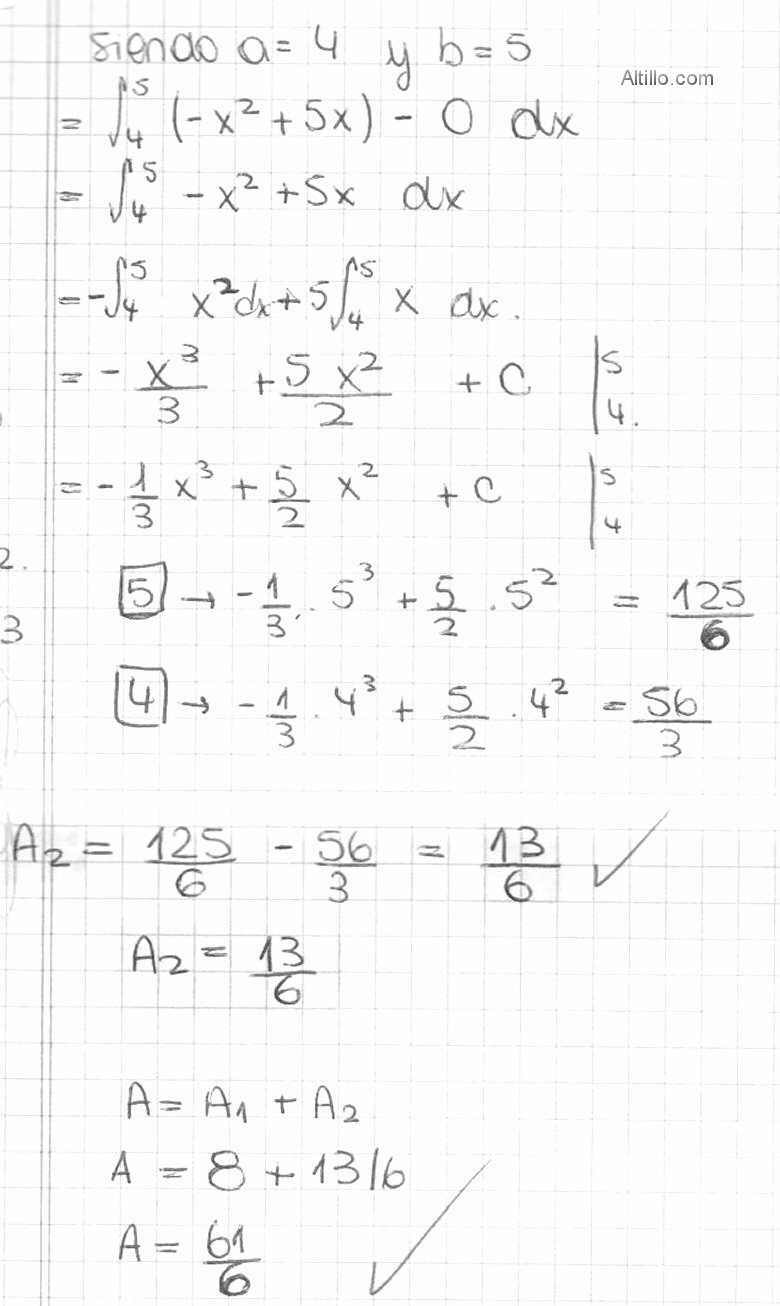 siendo a = 4 y b = 5
Altillo.com
= ∫₄⁵ (-x² + 5x) - 0 dx
= ∫₄⁵ -x² + 5x dx
= -∫₄⁵ x² dx + 5 ∫₄⁵ x dx.
= - x³/3 + 5x²/2 + C |₄⁵.
= - 1/3 x³ + 5/2 x² + C |₄⁵
2.
5 → - 1/3 . 5³ + 5/2 . 5² = 125/6
3
4 → - 1/3 . 4³ + 5/2 . 4² = 56/3
A₂ = 125/6 - 56/3 = 13/6 ✓
A₂ = 13/6
A = A₁ + A₂
A = 8 + 13/6
A = 61/6 ✓